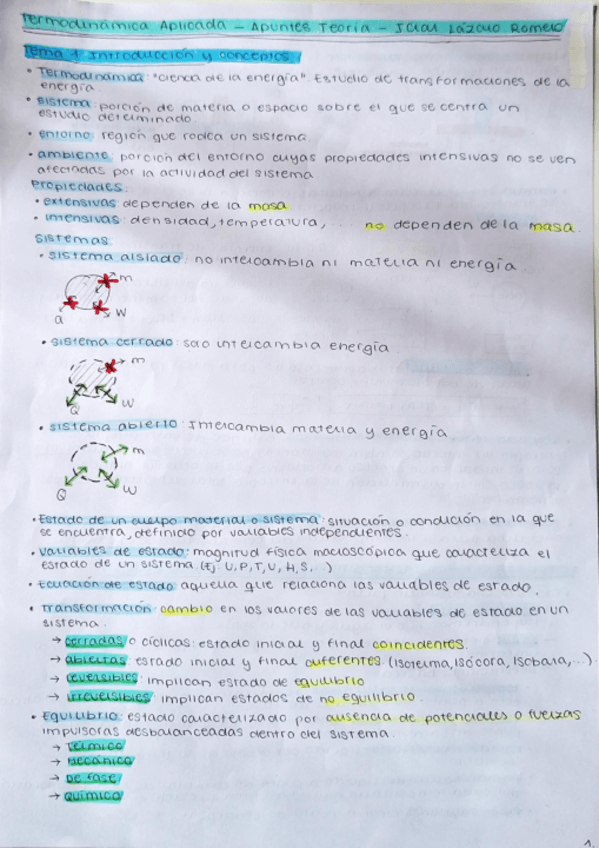 Termodinámica Aplicada - Apuntes Teoría - Lázaro Romero
Tema 1 Introducción y conceptos
• Termodinámica: "ciencia de la energía". Estudio de transformaciones de la
energía.
• sistema: porción de materia o espacio sobre el que se centra un
estudio determinado.
• entorno: región que rodea un sistema.
• ambiente: porción del entorno cuyas propiedades intensivas no se ven
afectadas por la actividad del sistema
Propiedades:
• extensivas dependen de la masa
• intensivas: densidad, temperatura, ... no dependen de la masa.
Sistemas:
• sistema aislado: no intercambia ni materia ni energía
m
Q W
• sistema cerrado: solo intercambia energía
m
Q W
• sistema abierto: Intercambia materia y energía.
m
Q W
• Estado de un cuerpo material o sistema: situación o condición en la que
se encuentra, definido por variables independientes.
• variables de estado: magnitud física macroscópica que caracteriza el
estado de un sistema. (Ej: U, P, T, U, H, S...)
• Ecuación de estado: aquella que relaciona las variables de estado.
• Transformación: cambio en los valores de las variables de estado en un
sistema.
→ cerradas o cíclicas: estado inicial y final coincidentes.
→ abiertas: estado inicial y final diferentes (isoterma, isócora, isobara, ...).
→ reversibles: implican estado de equilibrio
→ irreversibles: implican estados de no equilibrio.
• Equilibrio: estado caracterizado por ausencia de potenciales o fuerzas
impulsoras desbalanceadas dentro del sistema.
→ Térmico
→ Mecánico
→ De fase
→ Químico
1.